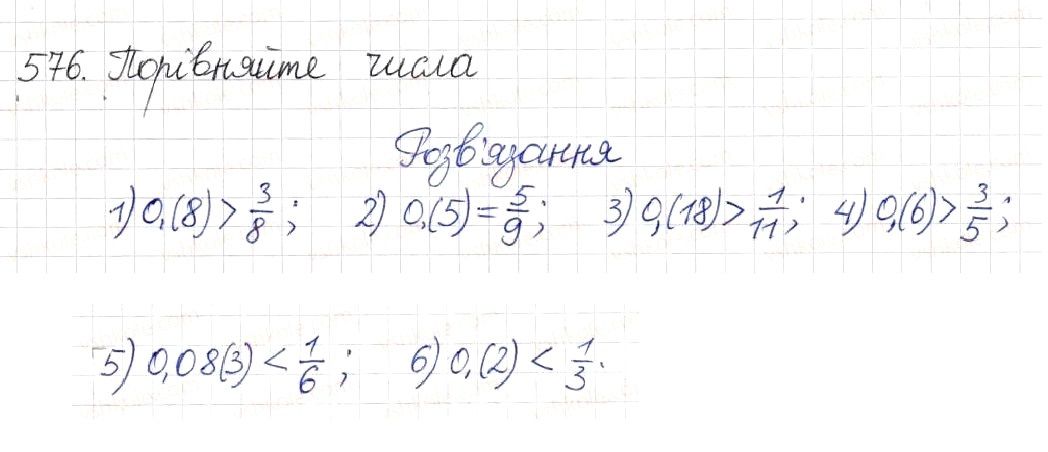 576. Порівняйте числа
Розв'язання
1) 0,(8) > 3/8 ; 2) 0,(5) = 5/9 ; 3) 0,(18) > 1/11 ; 4) 0,(6) > 3/5 ;
5) 0,08(3) < 1/6 ; 6) 0,(2) < 1/3 .